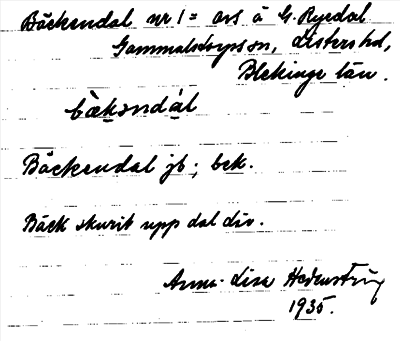 Bäckendal nr 1 = avs å G. Ryedal
Gammalstorps sn, Listers hd,
Blekinge län.
bæ̀kəndál
Bäckendal jb; bek.
Bäck skurit upp dal div.
Anna-Lisa Hedenström
1935.